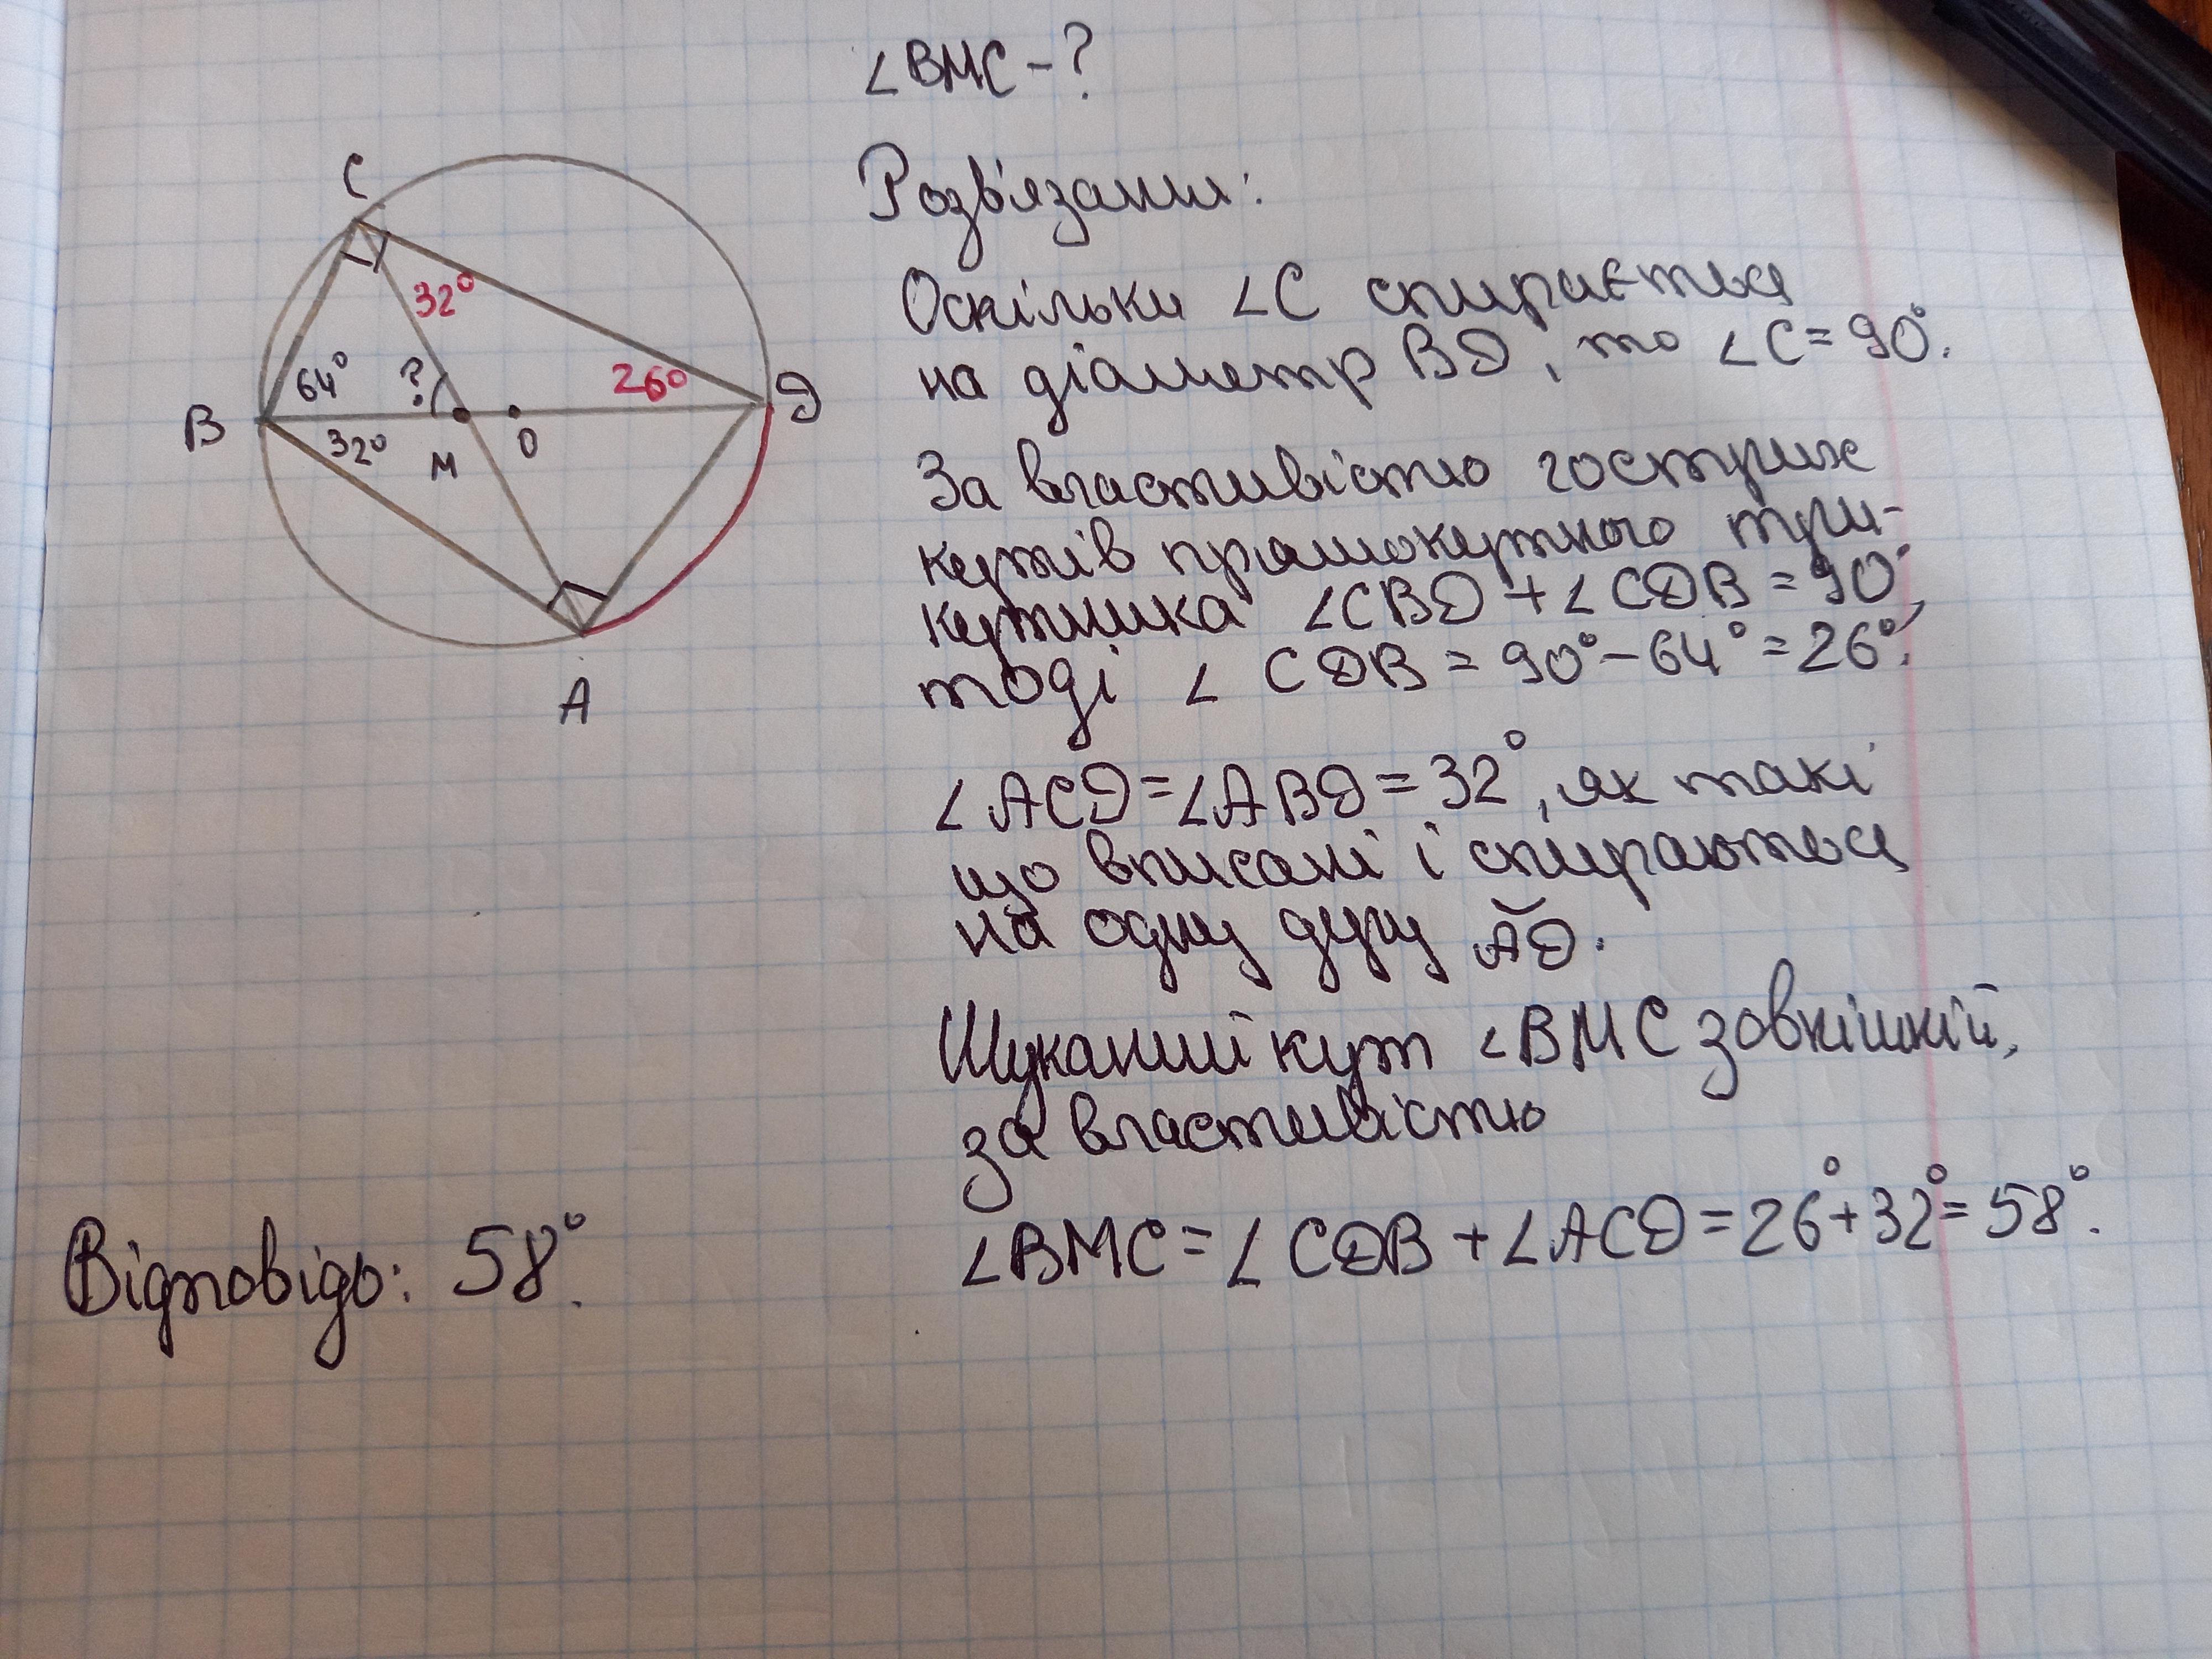 ∠BMC - ?
C
32°
64°
?
26°
B
D
32°
M
O
A
Розв'язання:
Оскільки ∠C спирається
на діаметр BD, то ∠C = 90°.
За властивістю гострих
кутів прямокутного три-
кутника ∠CBD + ∠CDB = 90°,
тоді ∠CDB = 90° - 64° = 26°.
∠ACD = ∠ABD = 32°, як такі
що вписані і спираються
на одну дугу AD.
Шуканий кут ∠BMC зовнішній,
за властивістю
∠BMC = ∠CDB + ∠ACD = 26° + 32° = 58°.
Відповідь: 58°.